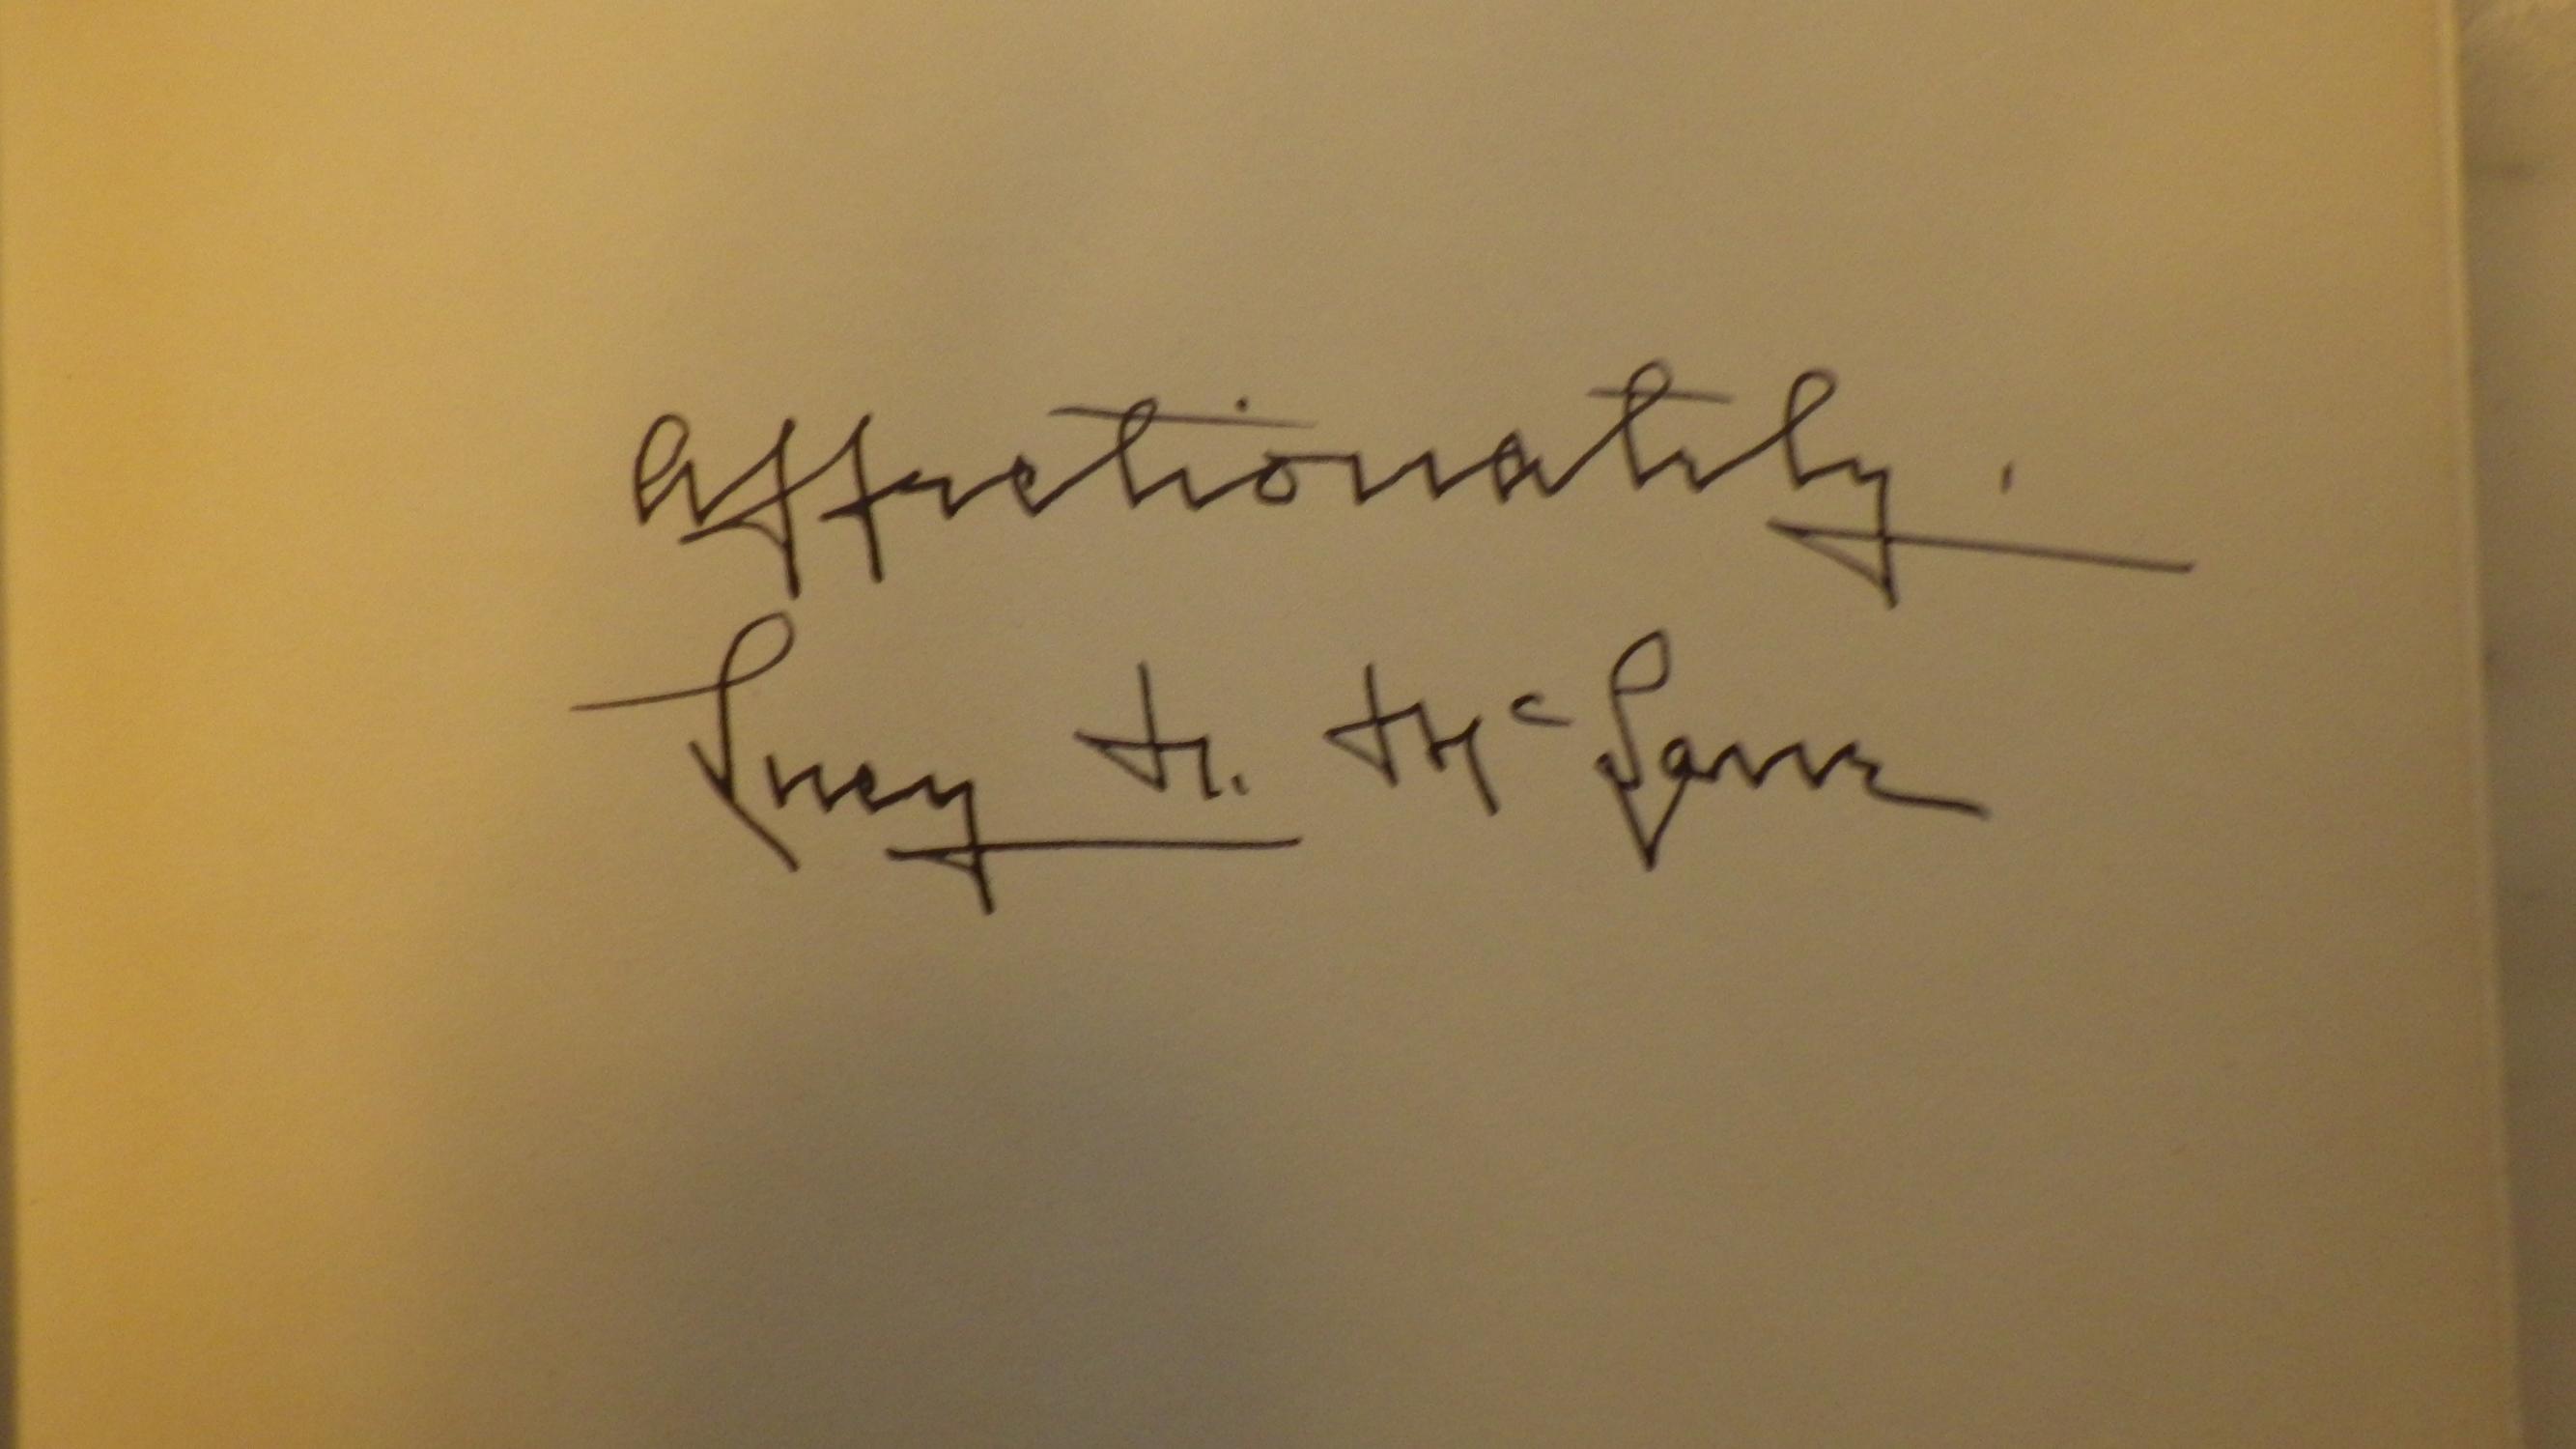 Affectionately.
Lucy N. McLane